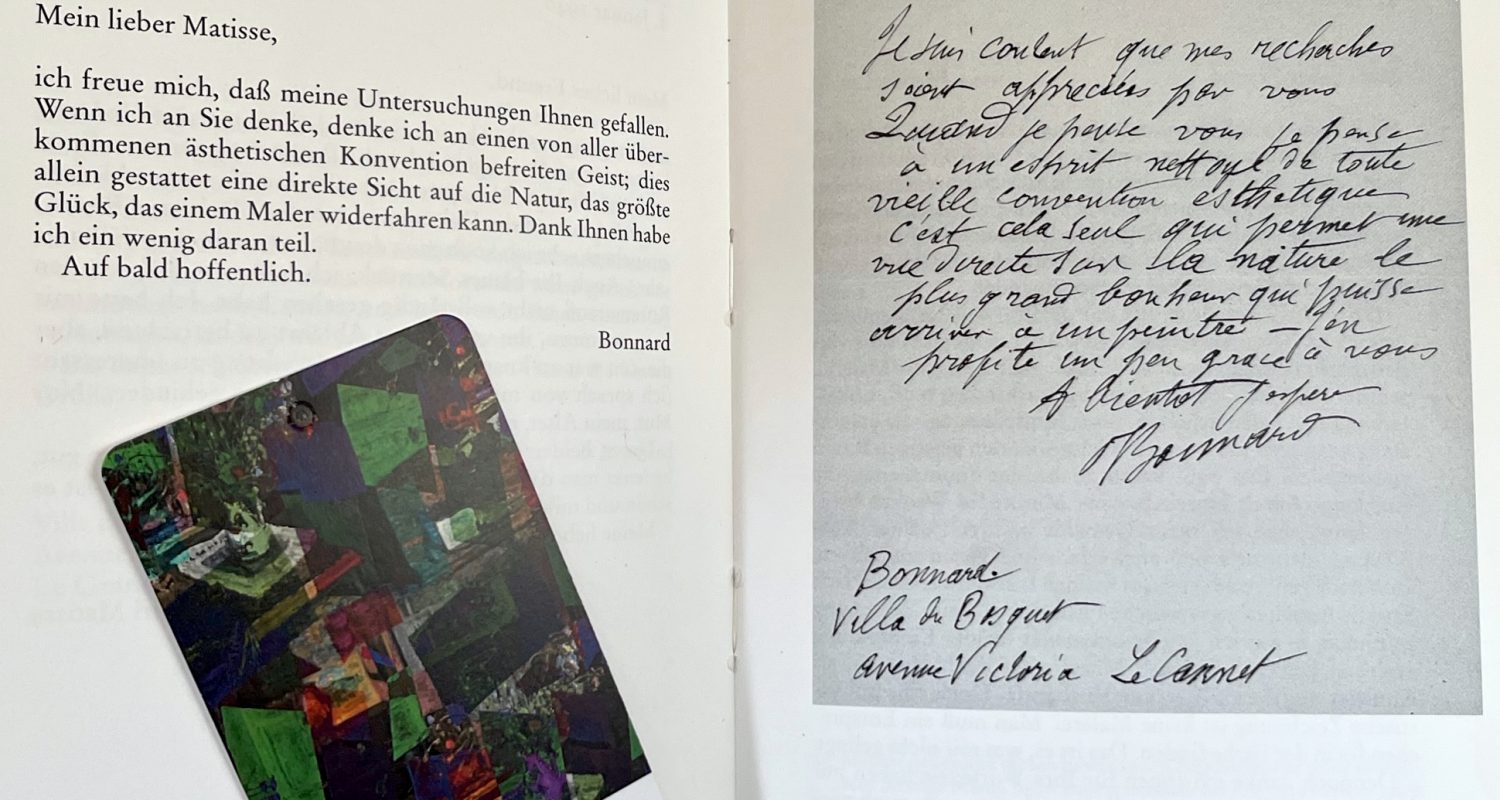 Mein lieber Matisse,
ich freue mich, daß meine Untersuchungen Ihnen gefallen.
Wenn ich an Sie denke, denke ich an einen von aller über-
kommenen ästhetischen Konvention befreiten Geist; dies
allein gestattet eine direkte Sicht auf die Natur, das größte
Glück, das einem Maler widerfahren kann. Dank Ihnen habe
ich ein wenig daran teil.
Auf bald hoffentlich.
Bonnard
Je suis content que mes recherches
soient appreciées par vous
Quand je pense vous je pense
à un esprit nettoyé de toute
vieille convention esthetique
c'est cela seul qui permet une
vue directe sur la nature le
plus grand bonheur qui puisse
arriver à un peintre – j'en
profite un peu grace à vous
A bientot j'espere
Bonnard
Bonnard
Villa du Bosquet
avenue Victoria Le Cannet